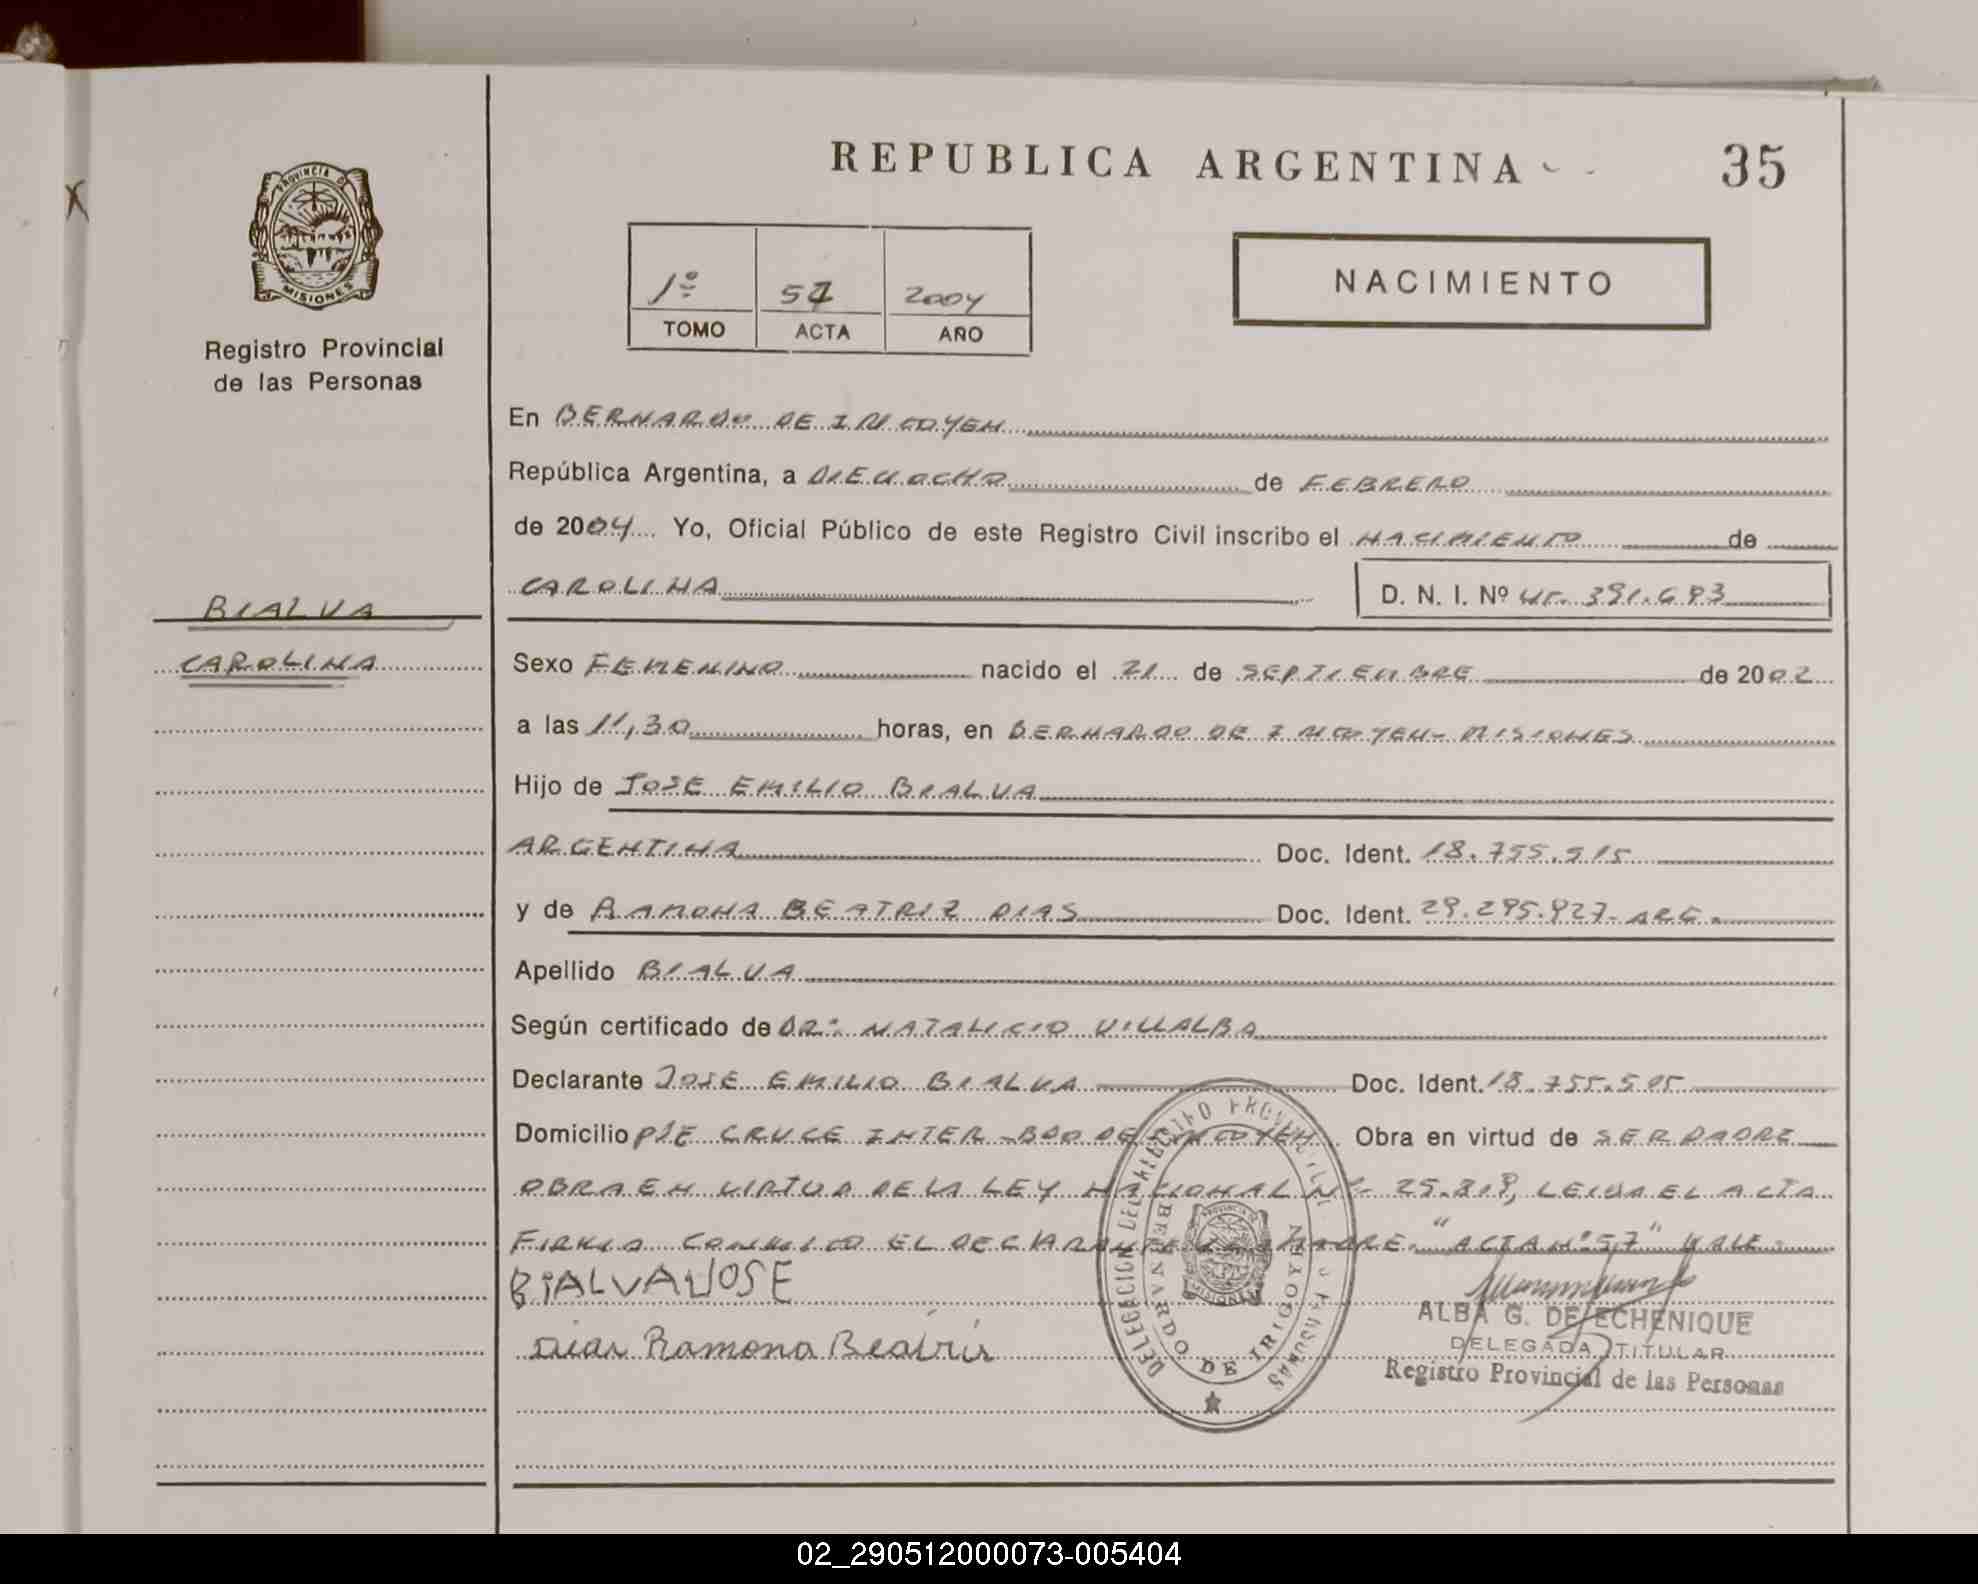 REPUBLICA ARGENTINA
35
PROVINCIA DE
MISIONES
Registro Provincial
de las Personas
1º 57 2004
TOMO ACTA AÑO
NACIMIENTO
En BERNARDO DE IRIGOYEN
República Argentina, a DIECIOCHO de FEBRERO
de 2004 Yo, Oficial Público de este Registro Civil inscribo el NACIMIENTO de
CAROLINA D. N. I. Nº 45.391.693
BIALVA
CAROLINA
Sexo FEMENINO nacido el 21 de SEPTIEMBRE de 2002
a las 11,30 horas, en BERNARDO DE IRIGOYEN- MISIONES
Hijo de JOSE EMILIO BIALVA
ARGENTINA Doc. Ident. 18.755.515
y de RAMONA BEATRIZ DIAS Doc. Ident. 29.295.927- ARG.
Apellido BIALVA
Según certificado de DR. NATALICIO VILLALBA
Declarante JOSE EMILIO BIALVA Doc. Ident. 18.755.515
Domicilio PJE CRUCE INTER-BDO DE IRIGOYEN Obra en virtud de SER PADRE
OBRA EN VIRTUD DE LA LEY NACIONAL Nº 25.819, LEIDA EL ACTA
FIRMA CONMIGO EL DECLARANTE MADRE. "ACTA Nº 57" VALE.
BIALVA JOSE
Dias Ramona Beatriz
DELEGACION DEL REGISTRO PROVINCIAL DE LAS PERSONAS
BERNARDO DE IRIGOYEN
PROVINCIA DE
MISIONES
ALBA G. DE ECHENIQUE
DELEGADA TITULAR
Registro Provincial de las Personas
02_290512000073-005404